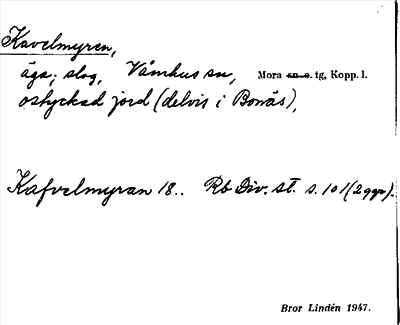 Kavelmyren,
äga; slog, Våmhus sn, Mora sn o. tg, Kopp. l.
ostyckad jord (delvis i Bonäs),
Kafvelmyran 18.. Rb Div. st. s. 101 (2 ggr).
Bror Lindén 1947.